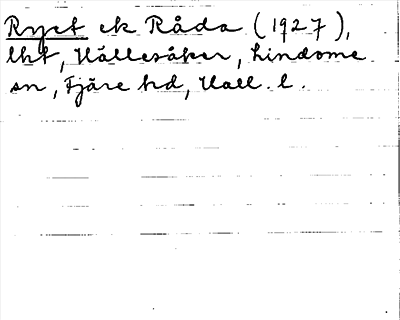 Ryet ek Råda (1927),
lht, Hällesåker, Lindome
sn, Fjäre hd, Hall. l.